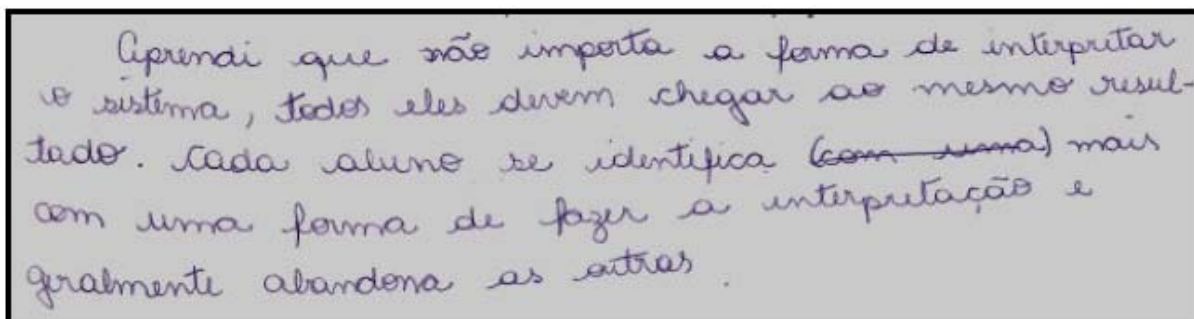 Aprendi que não importa a forma de interpretar
o sistema, todos eles devem chegar ao mesmo resul-
tado. Cada aluno se identifica (com uma) mais
com uma forma de fazer a interpretação e
geralmente abandona as outras.